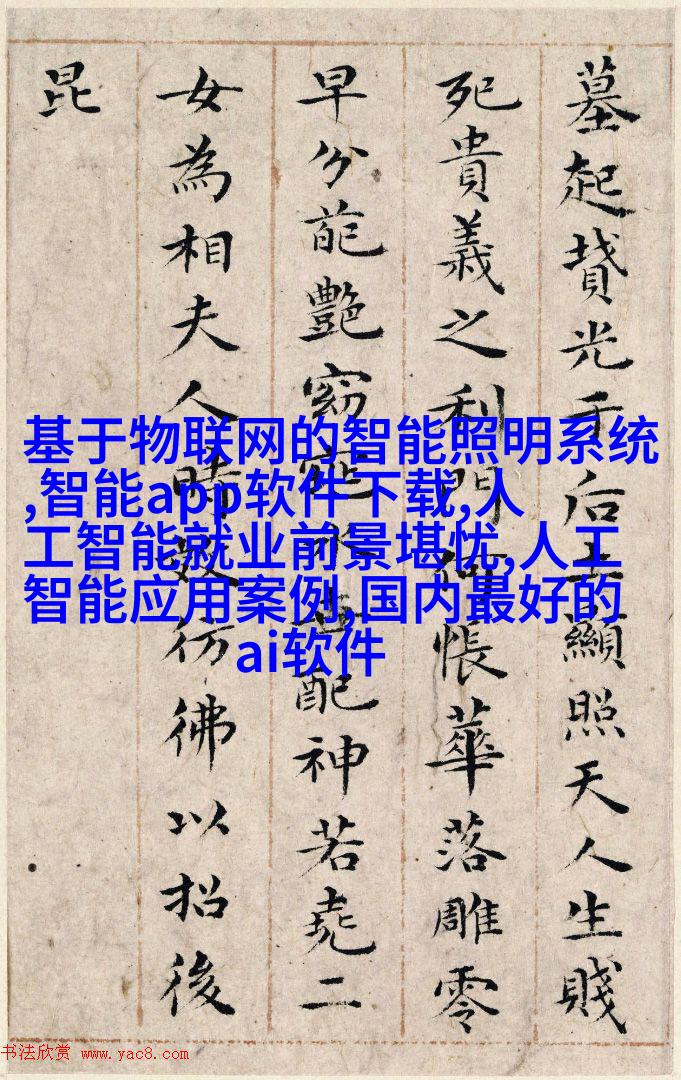 墓起墳光于后土顯照天人生賤
死貴義之利門何悵華落雕零
早分葩艷窈窕永世配神若堯二
女為相夫人時效仿彿以招後
昆
基于物联网的智能照明系统
,智能app软件下载,人
工智能就业前景堪忧,人工
智能应用案例,国内最好的
ai软件
书法欣赏 www.yac8.com